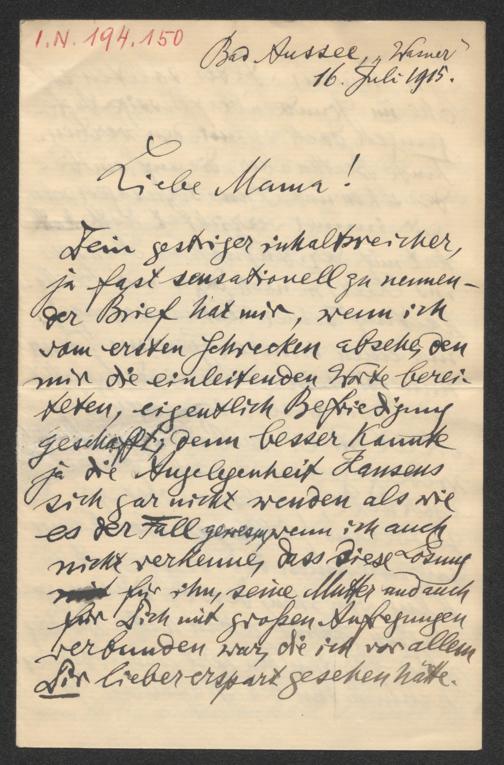 I.N. 194.150
Bad Aussee, „Wasner"
16. Juli 1915.
Liebe Mama!
Dein gestriger inhaltsreicher,
ja fast sensationell zu nennen-
der Brief hat mir, wenn ich
vom ersten Schrecken absehe, den
mir die einleitenden Worte berei-
teten, eigentlich Befriedigung
geschafft; denn besser konnte
ja die Angelegenheit Hansens
sich gar nicht wenden als wie
es der Fall gewesen, wenn ich auch
nicht verkenne, dass diese Lösung
für ihn, seine Mutter und auch
für Dich mit großen Aufregungen
verbunden war, die ich vor allem
Dir lieber erspart gesehen hätte.